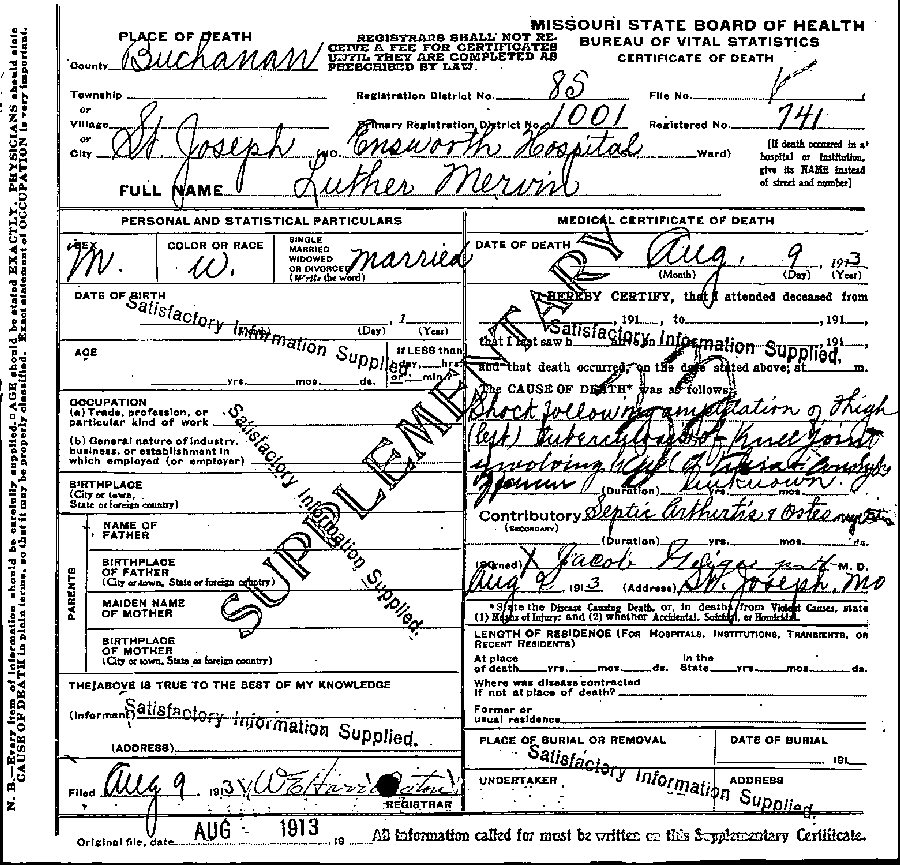 MISSOURI STATE BOARD OF HEALTH
BUREAU OF VITAL STATISTICS
CERTIFICATE OF DEATH
PLACE OF DEATH
County Buchanan
REGISTRARS SHALL NOT RE-
CEIVE A FEE FOR CERTIFICATES
UNTIL THEY ARE COMPLETED AS
PRESCRIBED BY LAW.
Township
Registration District No. 85
File No.
or
Village
Primary Registration District No. 1001
Registered No. 741
or
City St. Joseph
(No. Ensworth Hospital
Ward)
[If death occurred in a
hospital or institution,
give its NAME instead
of street and number]
FULL NAME Luther Mervin
PERSONAL AND STATISTICAL PARTICULARS
SEX
M.
COLOR OR RACE
W.
SINGLE
MARRIED
WIDOWED
OR DIVORCED
(Write the word)
married
DATE OF BIRTH
Satisfactory Information Supplied.
(Day) 1 (Year)
AGE
yrs. mos. ds.
If LESS than
day, hrs.
or min.
OCCUPATION
(a) Trade, profession, or
particular kind of work
(b) General nature of industry,
business, or establishment in
which employed (or employer)
Satisfactory Information Supplied.
BIRTHPLACE
(City or town,
State or foreign country)
PARENTS
NAME OF
FATHER
BIRTHPLACE
OF FATHER
(City or town, State or foreign country)
MAIDEN NAME
OF MOTHER
BIRTHPLACE
OF MOTHER
(City or town, State or foreign country)
THE ABOVE IS TRUE TO THE BEST OF MY KNOWLEDGE
(Informant) Satisfactory Information Supplied.
(ADDRESS)
Filed Aug 9 1913
REGISTRAR
SUPPLEMENTARY
MEDICAL CERTIFICATE OF DEATH
DATE OF DEATH Aug. 9 1913
(Month) (Day) (Year)
I HEREBY CERTIFY, that I attended deceased from
, 191 , to , 191 ,
that I last saw h alive on , 191 ,
Satisfactory Information Supplied.
and that death occurred, on the date stated above, at m.
The CAUSE OF DEATH* was as follows:
Shock following amputation of Thigh
(left) Tuberculosis of Knee Joint
involving
unknown.
(Duration) yrs. mos.
Contributory Septic Arthritis &
(SECONDARY)
(Duration) yrs. mos. ds.
(Signed) Jacob M. D.
Aug 9, 1913 (Address) St. Joseph, Mo
*State the Disease Causing Death, or, in deaths from Violent Causes, state
(1) Means of Injury; and (2) whether Accidental, Suicidal, or Homicidal.
LENGTH OF RESIDENCE (For Hospitals, Institutions, Transients, or
Recent Residents)
At place
of death yrs. mos. ds.
In the
State yrs. mos. ds.
Where was disease contracted
if not at place of death?
Former or
usual residence
PLACE OF BURIAL OR REMOVAL
DATE OF BURIAL
191
Satisfactory Information Supplied.
UNDERTAKER
ADDRESS
Original file, date AUG - 1913 19
All information called for must be written on this Supplementary Certificate.
N. B.—Every item of information should be carefully supplied. AGE should be stated EXACTLY. PHYSICIANS should state
CAUSE OF DEATH in plain terms, so that it may be properly classified. Exact statement of OCCUPATION is very important.